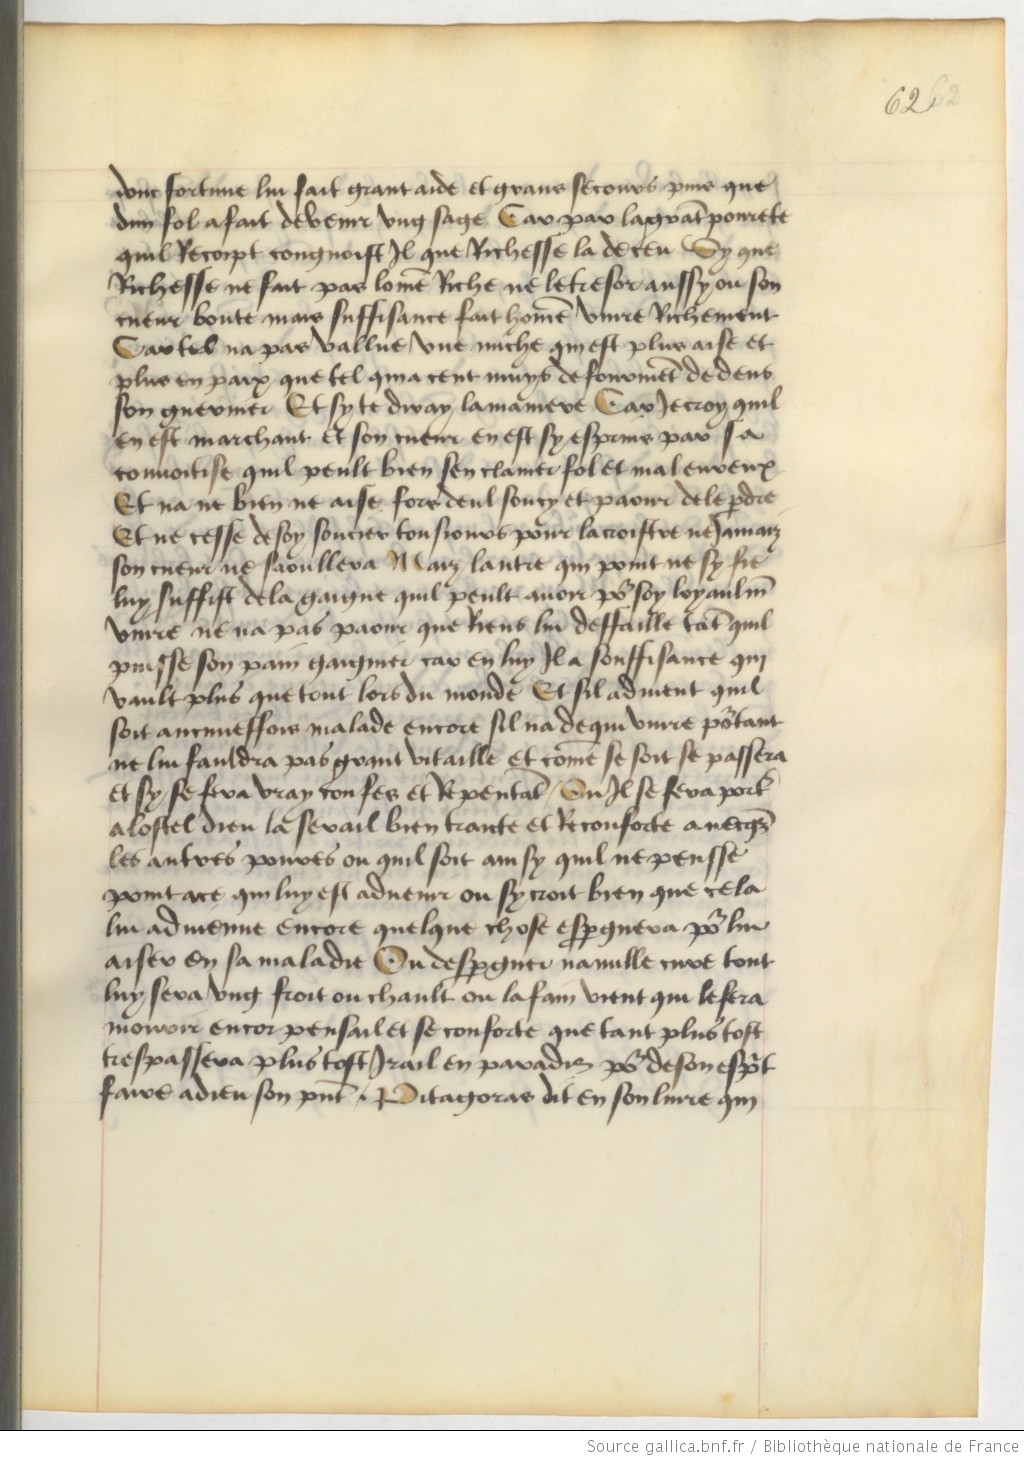 62 62
donc fortune lui fait grant aide et grans secours puis que
dun fol a fait devenir ung sage Car par la grãt pourete
quil Recoipt congnoist Il que Richesse la deceu Sy que
Richesse ne fait pas lomẽ Riche ne le tresor aussy ou son
cueur boute mais suffisance fait homẽ vivre Richement
Car tel na pas vallue une miche qui est plus aise et
plus en paix que tel qui a cent muys de fourmẽt dedens
son guernier Et sy te diray la maniere Car Je croy quil
en est marchant et son cueur en est sy esprins par sa
convoitise quil peult bien sen clamer fol et maleureux
Et na ne bien ne aise fors deul soucy et paour de le pdre
Et ne cesse de soy soucier tousiours pour lacroistre ne Jamaiz
son cueur ne saoullera Maiz lautre qui point ne sy fie
luy suffist de la gaigne quil peult avoir po soy loyaulmt
vivre ne na pas paour que Riens lui deffaille tãt quil
puisse son pain gaignier car en luy Il a souffisance qui
vault plus que tout lors du monde Et sil advient quil
soit aucuneffois malade encore sil na de qui vivre potant
ne lui fauldra pas grant vitaille et comẽ se soit se passera
et sy se fera vray confes et Repentãt Ou Il se fera port
a lostel dieu la serail bien traite et Reconforte avecqs
les autres povres ou quil soit ainsy quil ne pensse
point a ce qui luy est advenir ou sy croit bien que cela
lui advienne encore quelque chose espgnera po lui
aiser en sa maladie Ou despgner na nulle cure tout
luy sera ung froit ou chault ou la fain vient qui le fera
mourir encor pensail et se conforte que tant plus tost
trespassera plus tost Irail en paradiz po de son esprt
faire a dieu son pnt. Pitagoras dit en son livre qui
Source gallica.bnf.fr / Bibliothèque nationale de France